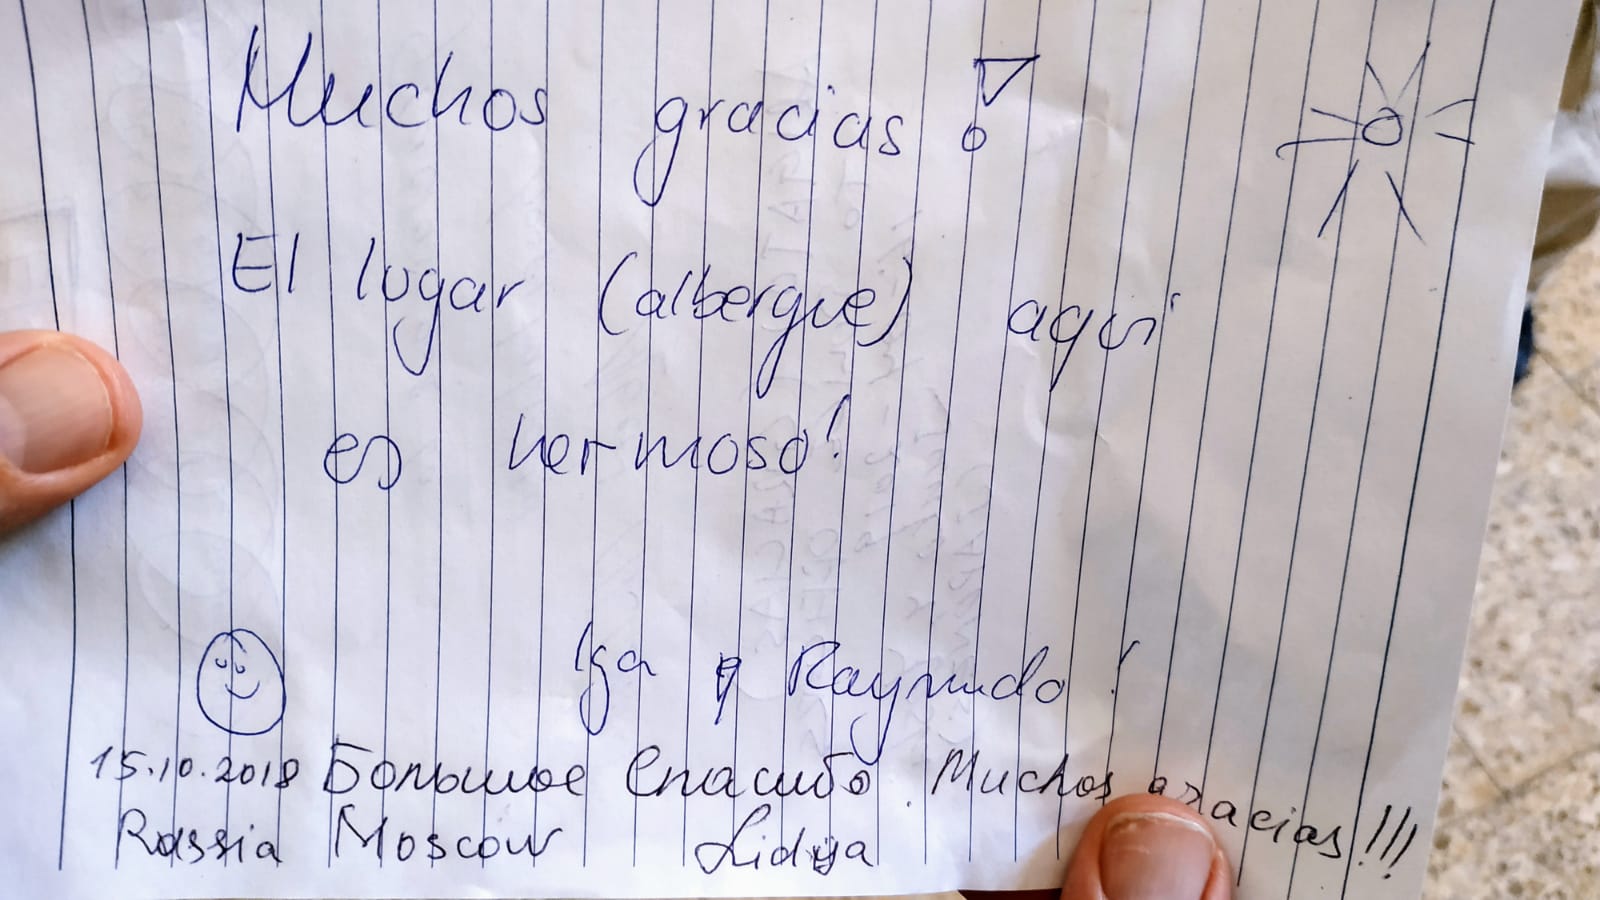 Muchos gracias!
El lugar (albergue) aquí
es hermoso!
Iga y Raymundo!
15.10.2018 Большое Спасибо. Muchos gracias!!!
Rassia Moscow Lidya